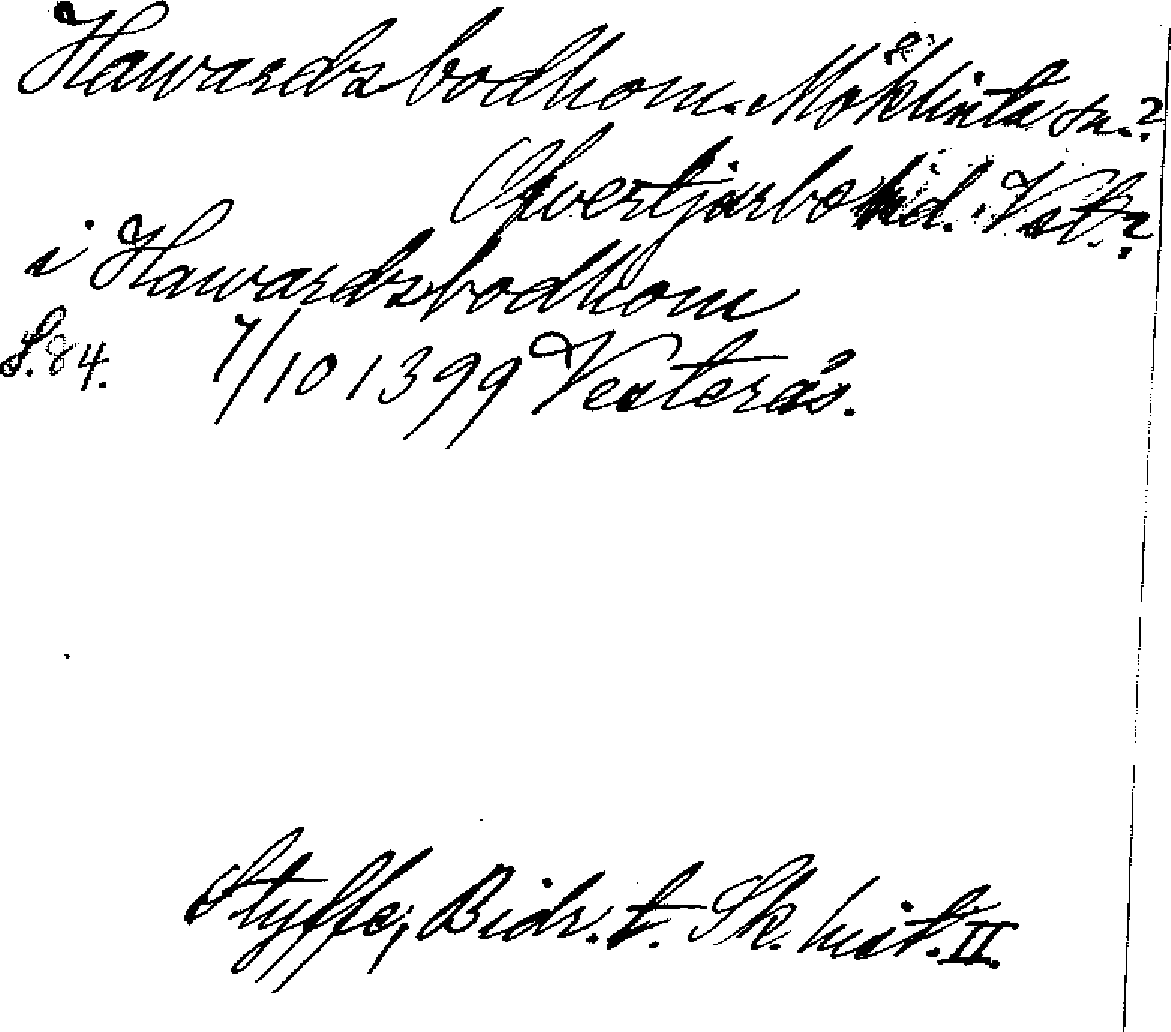 Hawardsbodhom. Möklinta sn.?
Öfvertjurbo hd. Vstm.?
i Hawardsbodhom
S. 84. 7/10 1399 Vesterås.
Styffe, Bidr. t. Sk. hist. II.